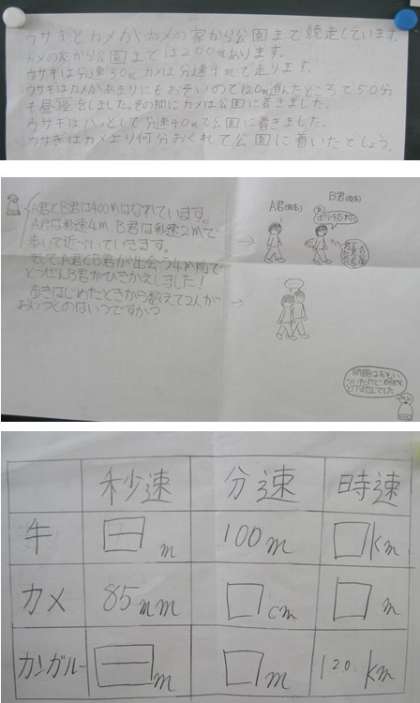 ウサギとカメがカメの家から公園まで競走しています。
カメの家から公園までは200mあります。
ウサギは分速30m カメは分速4mで走ります。
ウサギはカメがあまりにもおそいので120m進んだところで50分
も昼寝をしました。その間にカメは公園に着きました。
ウサギはハッとして分速40mで公園に着きました。
ウサギはカメより何分おくれて公園に着いたでしょう。
A君とB君は400mはなれています。
A君は秒速4m B君は秒速2mで
歩いて近づいていきます。
そしてA君とB君が出会う4m前で
とつぜんB君がひきかえしました!
歩きはじめたときから数えて2人が
おいつくのはいつですか?
A君 B君
秒速 分速 時速
牛 m 100m □km
カメ 85mm □cm □m
カンガルー m □m 120km